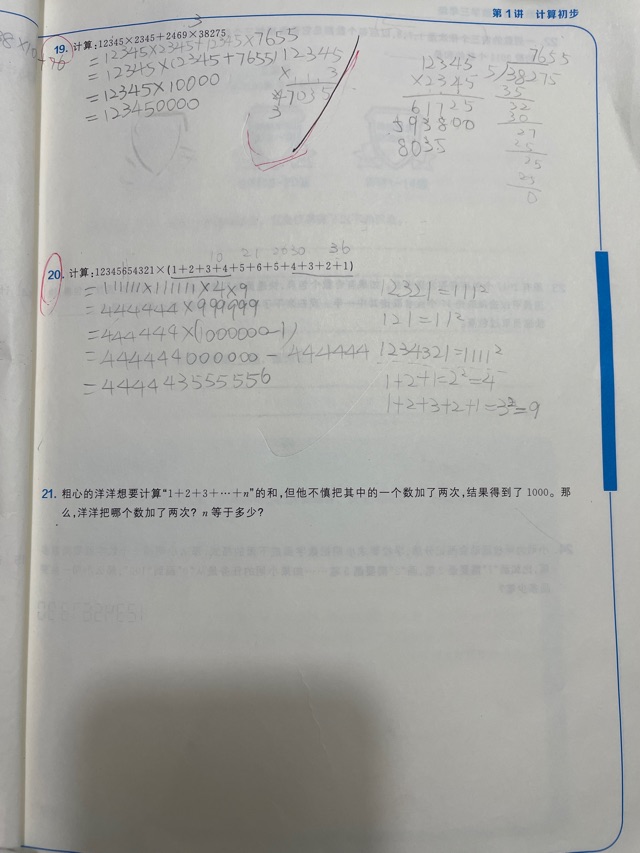 第1讲 计算初步
3
19. 计算:12345×2345+2469×38275
=12345×2345+12345×7655
=12345×(2345+7655)
=12345×10000
=123450000
12345
× 3
37035
12345
×2345
61725
593800
8035
7655
5/38275
35
32
30
27
25
25
25
0
10 21 2030 36
20. 计算:12345654321×(1+2+3+4+5+6+5+4+3+2+1)
=111111×111111×4×9
=444444×999999
=444444×(1000000-1)
=444444000000-444444
=444443555556
12321=111²
121=11²
1234321=1111²
1+2+1=2²=4
1+2+3+2+1=3²=9
21. 粗心的洋洋想要计算“1+2+3+…+n”的和,但他不慎把其中的一个数加了两次,结果得到了 1000。那
么,洋洋把哪个数加了两次? n 等于多少?